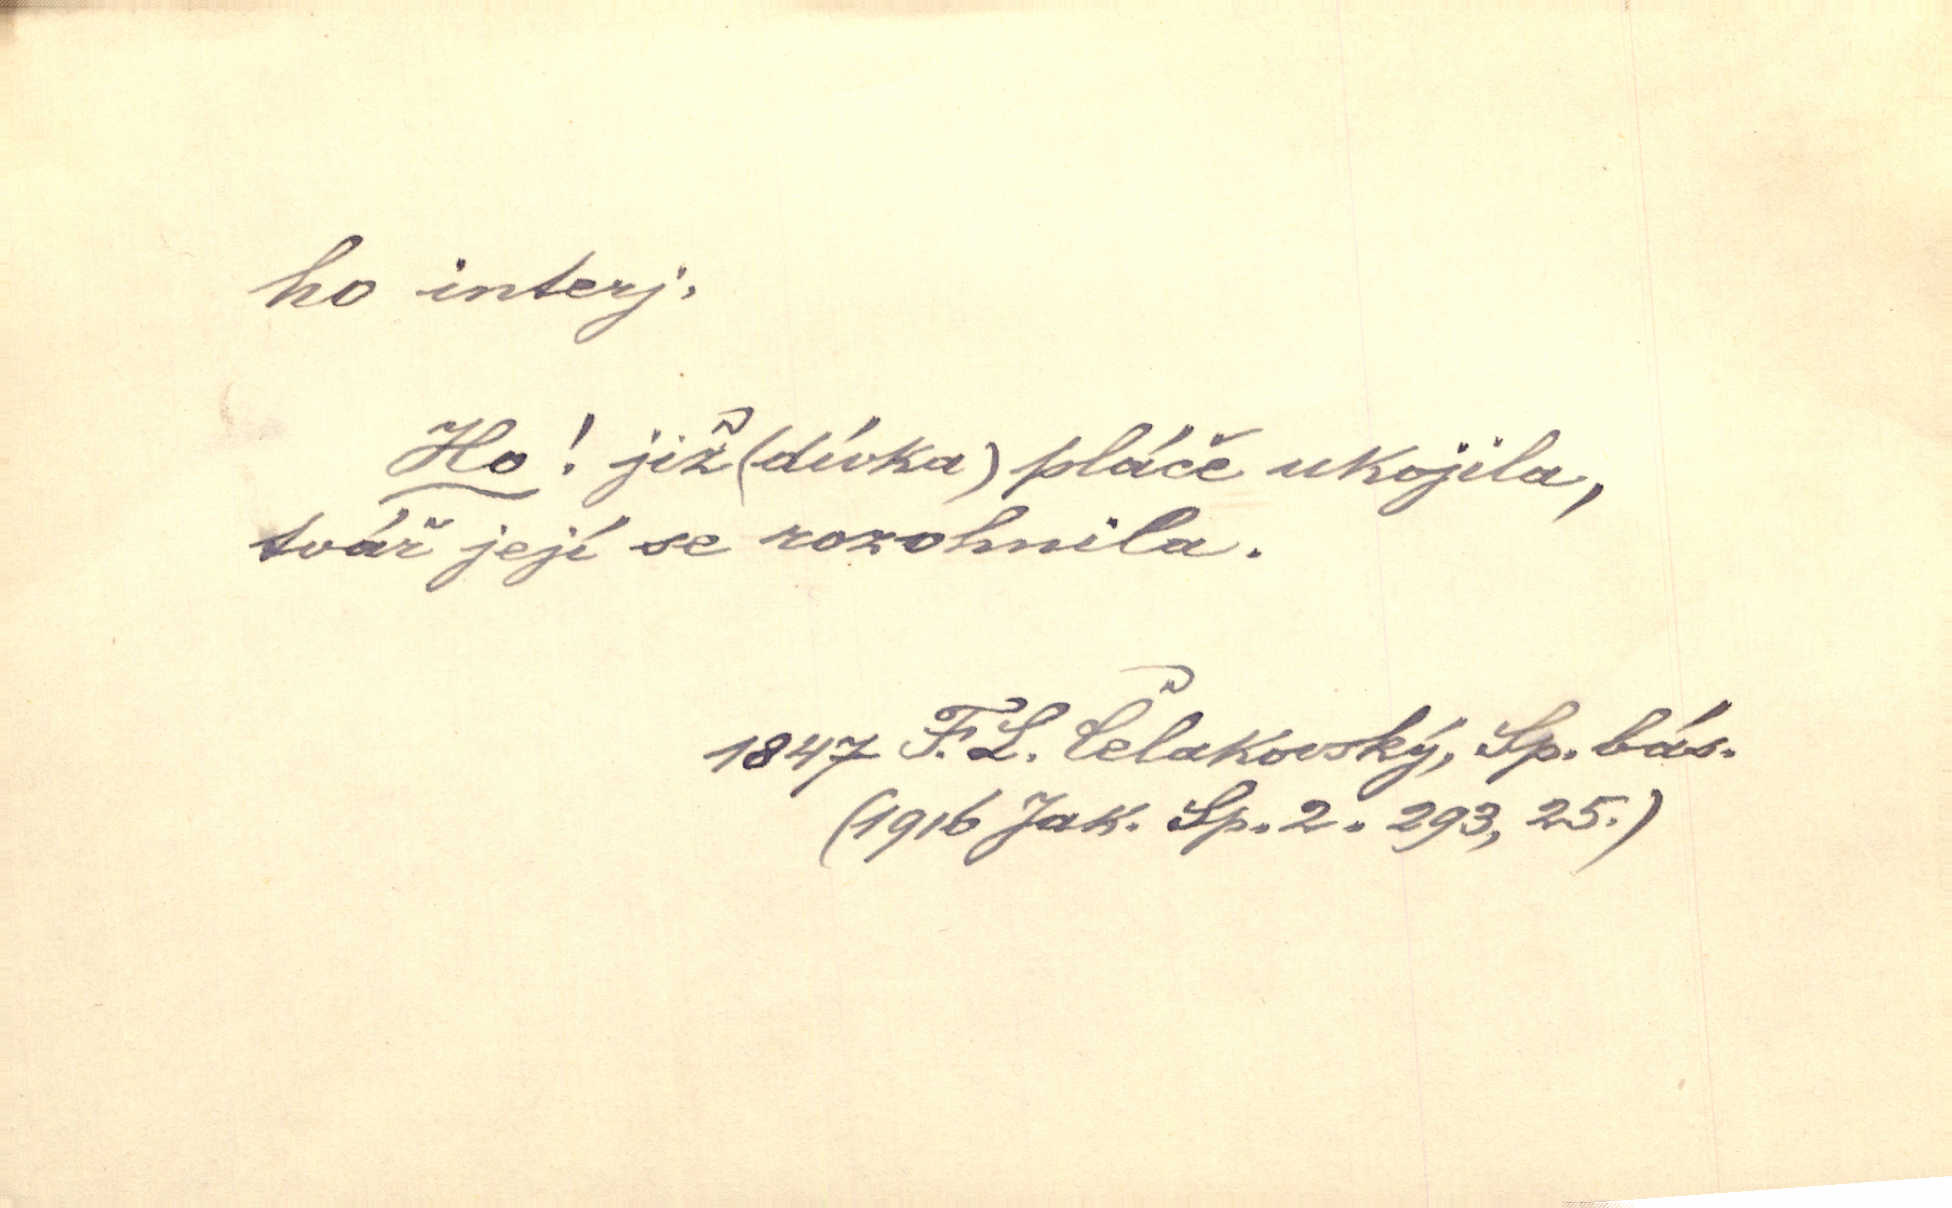 ho interj.
Ho! již (dívka) pláče ukojila,
tvář její se rozohnila.
1847 F. L. Čelakovský, Sp. bás.
(1916 Jak. Sp. 2. 293, 25.)